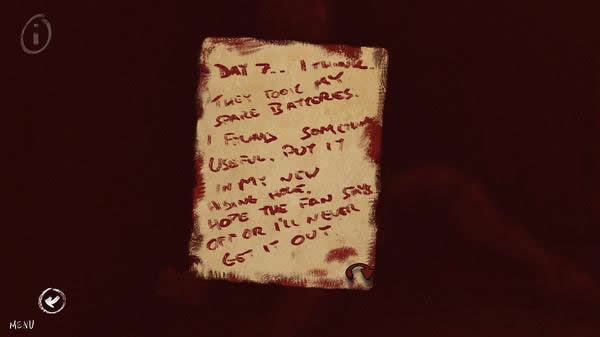 i
DAY 7.. I THINK.
THEY TOOK MY
SPARE BATTERIES.
I FOUND SOMETHIN
USEFUL. PUT IT
IN MY NEW
HIDING HOLE.
HOPE THE FAN STAYS
OFF OR I'LL NEVER
GET IT OUT
MENU